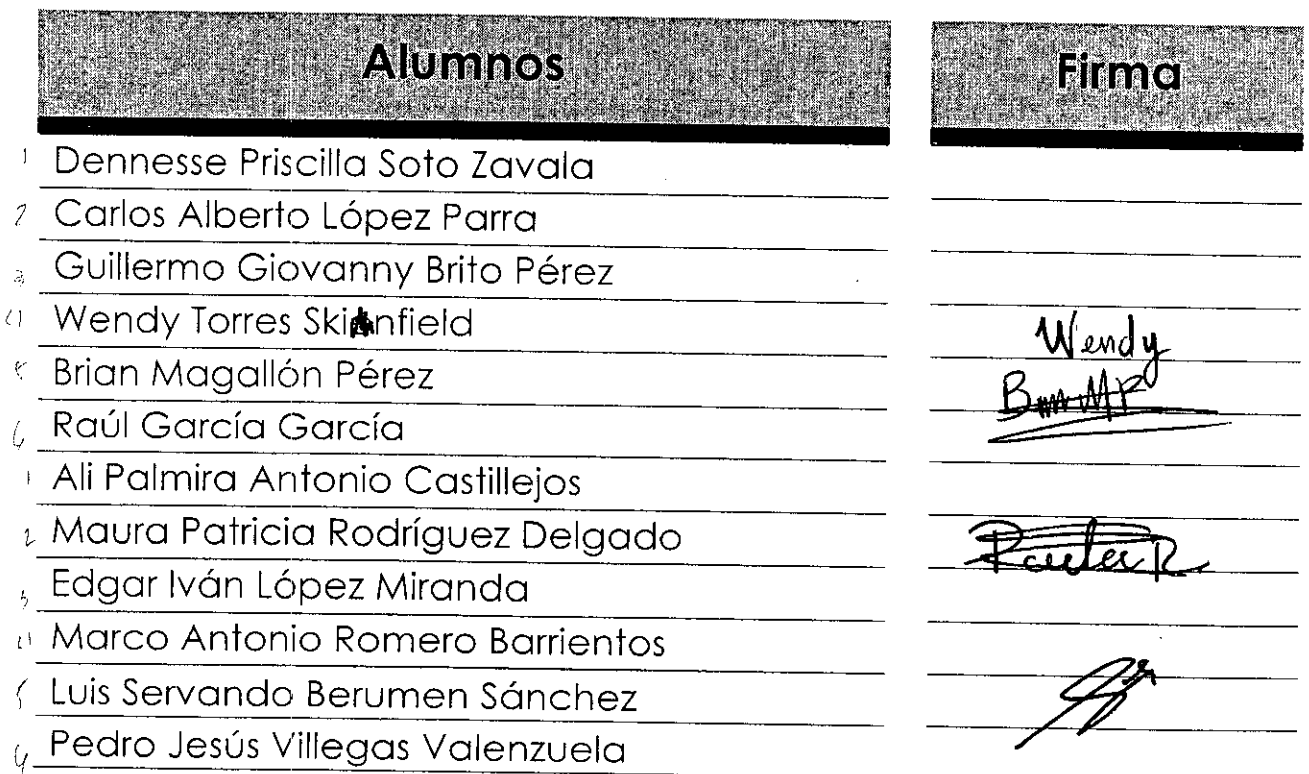 Alumnos Firma
1 Dennesse Priscilla Soto Zavala
2 Carlos Alberto López Parra
3 Guillermo Giovanny Brito Pérez
4 Wendy Torres Skinfield Wendy
5 Brian Magallón Pérez
6 Raúl García García
1 Ali Palmira Antonio Castillejos
2 Maura Patricia Rodríguez Delgado
3 Edgar Iván López Miranda
4 Marco Antonio Romero Barrientos
5 Luis Servando Berumen Sánchez
6 Pedro Jesús Villegas Valenzuela